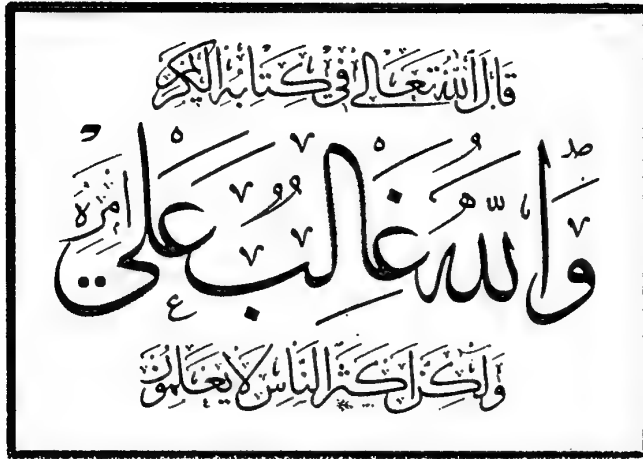 قَالَ اللّٰهُ تَعَالٰى فِي كِتَابِهِ الْكَرِيمِ
وَاللّٰهُ غَالِبٌ عَلٰى أَمْرِهِ
وَلٰكِنَّ أَكْثَرَ النَّاسِ لَا يَعْلَمُونَ